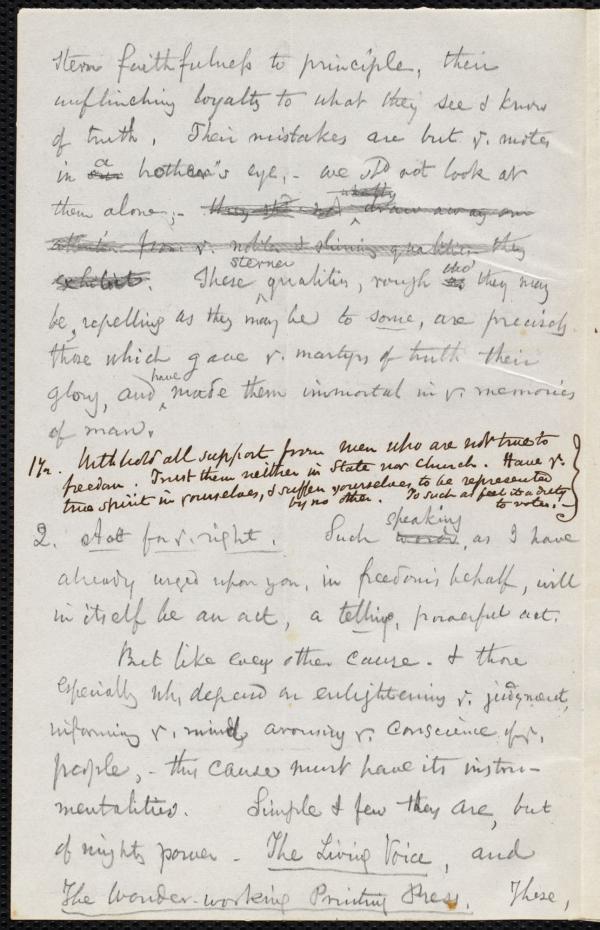 stern faithfulness to principle, their
unflinching loyalty to what they see & know
of truth. Their mistakes are but v. motes
in a brother's eye, - we shd not look at
them alone; - they shd not wholly draw away our
attention from v. nobler & shining qualities they
exhibit. These sterner qualities, rough tho' they may
be, repelling as they may be to some, are precisely
those which gave v. martyrs of truth their
glory, and have made them immortal in v. memories
of man.
1½. Withhold all support from men who are not true to
freedom. Trust them neither in State nor Church. Have v.
true spirit in yourselves, & suffer yourselves to be represented
by no other. To such as feel it a duty
to vote. -
2. Act for v. right. Such speaking, as I have
already urged upon you, in freedom's behalf, will
in itself be an act, a telling, powerful act.
But like every other cause - & those
especially wh. depend on enlightening v. judgment,
informing v. mind, arousing v. conscience of v.
people, - this cause must have its instru-
mentalities. Simple & few they are, but
of mighty power - The Living Voice, and
The Wonder-working Printing Press. These,